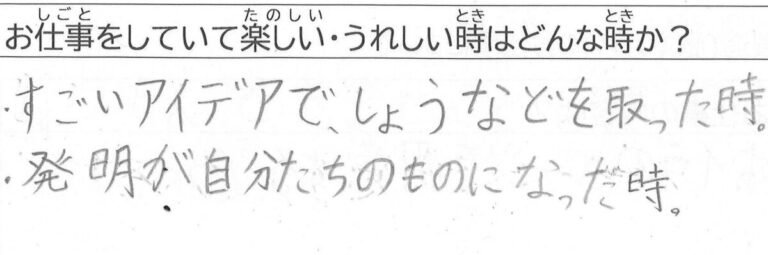 お仕事をしていて楽しい・うれしい時はどんな時か？
・すごいアイデアで、しょうなどを取った時。
・発明が自分たちのものになった時。